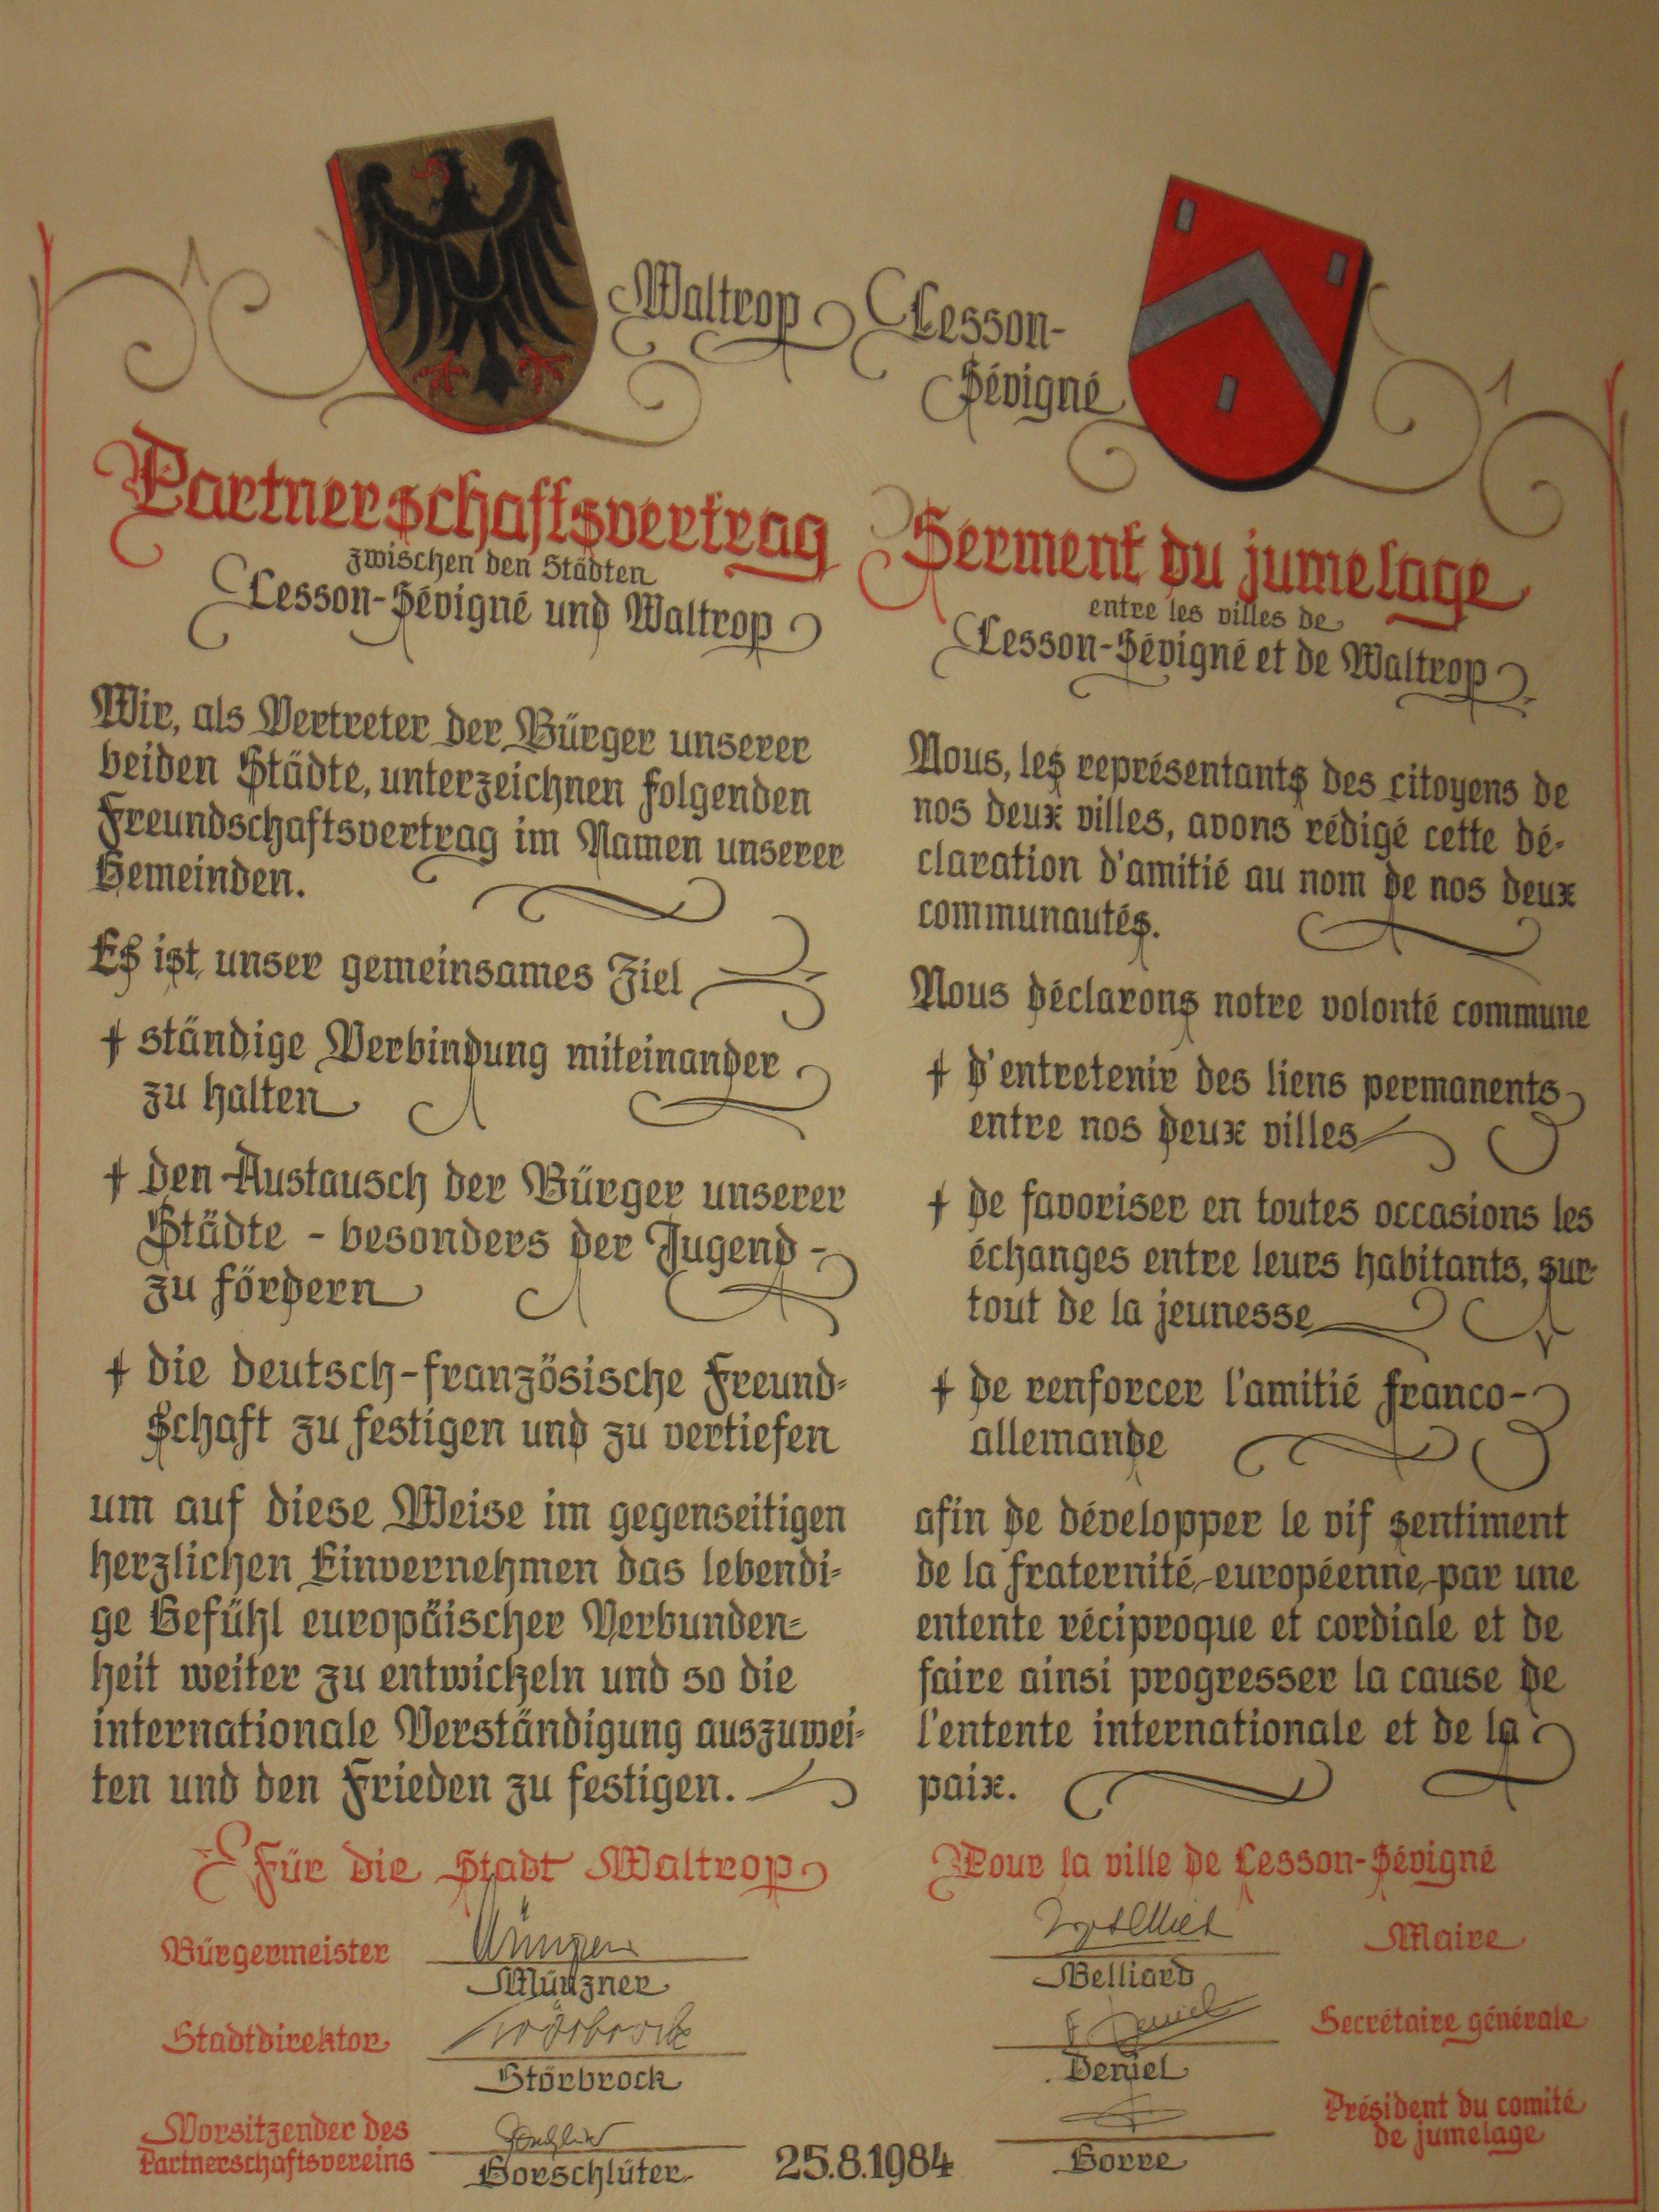 Waltrop
Cesson-
Sévigné
Partnerschaftsvertrag
zwischen den Städten
Cesson-Sévigné und Waltrop
Wir, als Vertreter der Bürger unserer
beiden Städte, unterzeichnen folgenden
Freundschaftsvertrag im Namen unserer
Gemeinden.
Es ist unser gemeinsames Ziel
+ ständige Verbindung miteinander
zu halten
+ den Austausch der Bürger unserer
Städte - besonders der Jugend -
zu fördern
+ die deutsch-französische Freund-
schaft zu festigen und zu vertiefen
um auf diese Weise im gegenseitigen
herzlichen Einvernehmen das lebendi-
ge Gefühl europäischer Verbunden-
heit weiter zu entwickeln und so die
internationale Verständigung auszuwei-
ten und den Frieden zu festigen.
Für die Stadt Waltrop
Bürgermeister
Münzner
Stadtdirektor
Störbrock
Vorsitzender des
Partnerschaftsvereins
Gorschlüter
Serment du jumelage
entre les villes de
Cesson-Sévigné et de Waltrop
Nous, les représentants des citoyens de
nos deux villes, avons rédigé cette dé-
claration d'amitié au nom de nos deux
communautés.
Nous déclarons notre volonté commune
+ d'entretenir des liens permanents
entre nos deux villes
+ de favoriser en toutes occasions les
échanges entre leurs habitants, sur-
tout de la jeunesse
+ de renforcer l'amitié franco-
allemande
afin de développer le vif sentiment
de la fraternité européenne par une
entente réciproque et cordiale et de
faire ainsi progresser la cause de
l'entente internationale et de la
paix.
Pour la ville de Cesson-Sévigné
Maire
Belliard
Secrétaire générale
Deniel
Président du comité
de jumelage
Gorre
25.8.1984